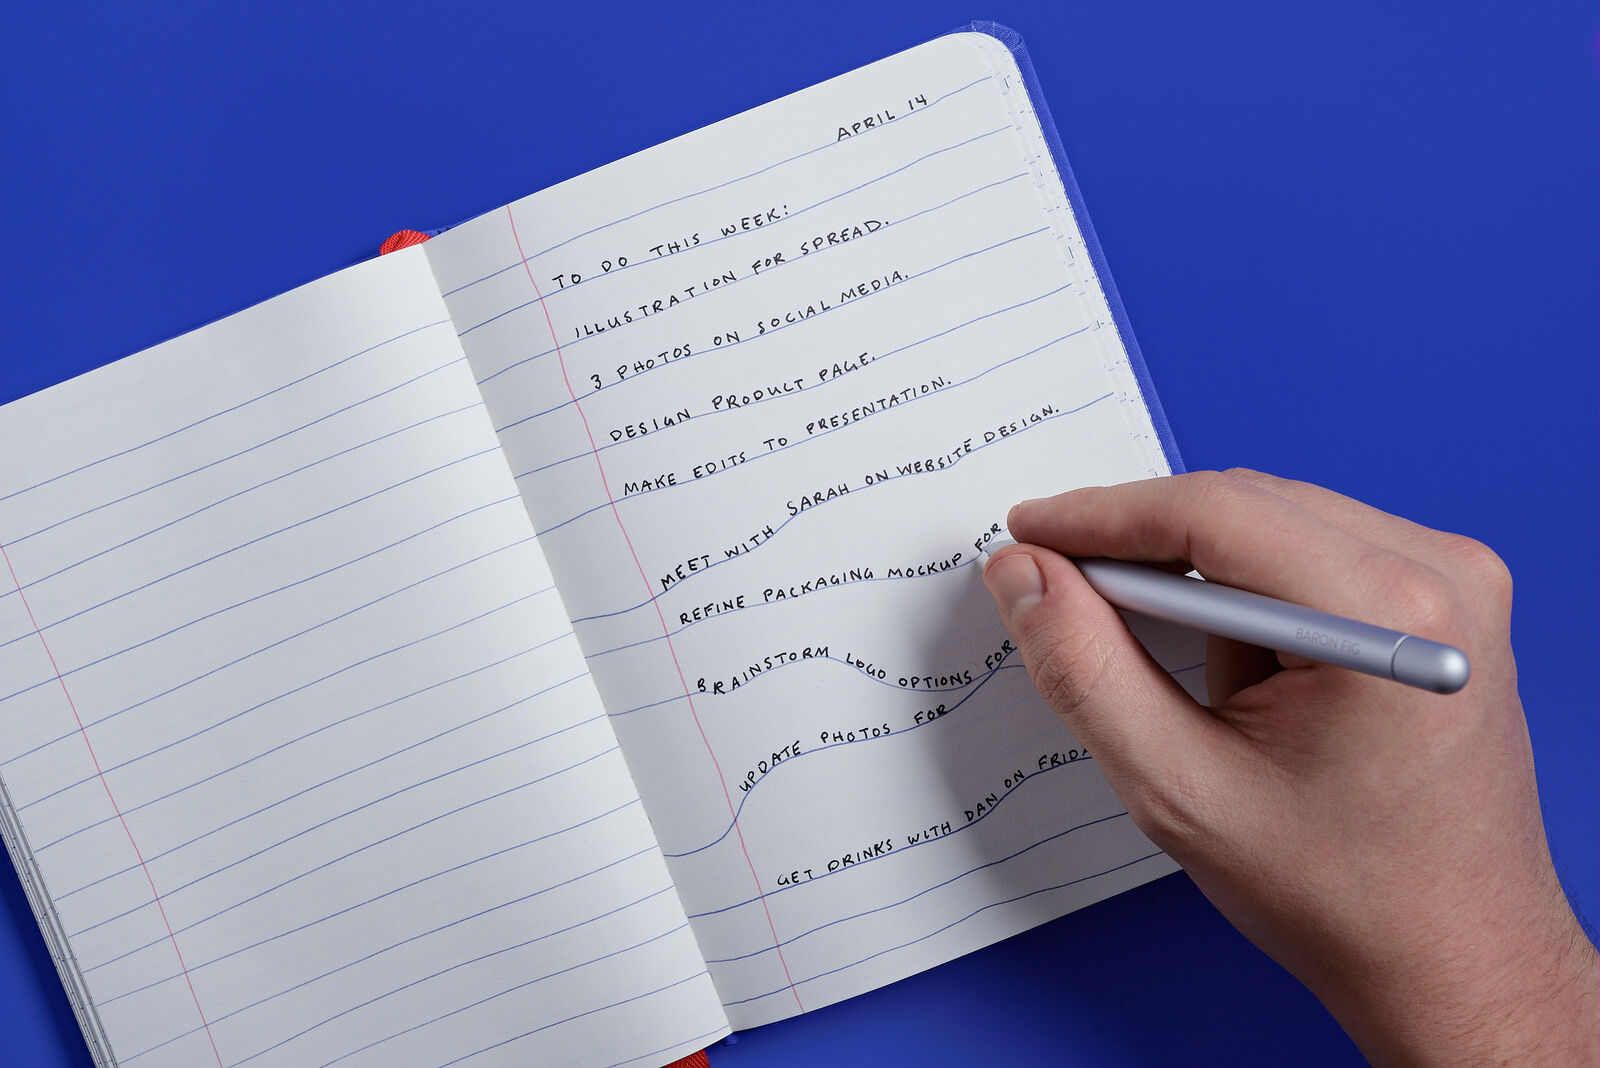 APRIL 14
TO DO THIS WEEK:
ILLUSTRATION FOR SPREAD.
3 PHOTOS ON SOCIAL MEDIA.
DESIGN PRODUCT PAGE.
MAKE EDITS TO PRESENTATION.
MEET WITH SARAH ON WEBSITE DESIGN.
REFINE PACKAGING MOCKUP FOR
BRAINSTORM LOGO OPTIONS FOR
UPDATE PHOTOS FOR
GET DRINKS WITH DAN ON FRIDA
BARON FIG